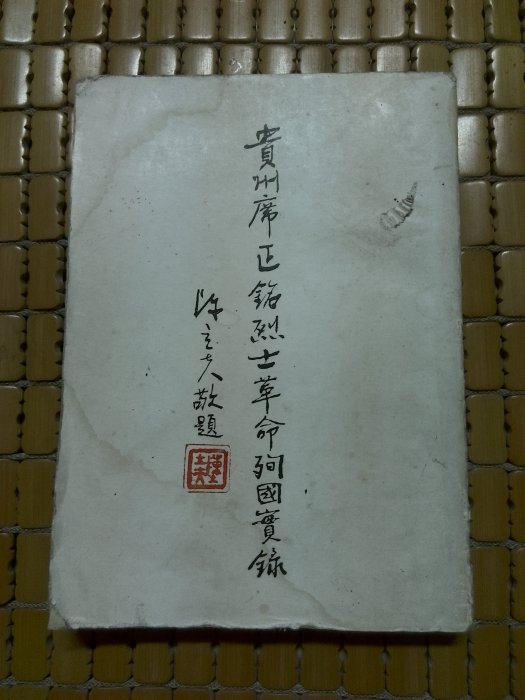 貴州席正銘烈士革命殉國實錄
陳立夫敬題